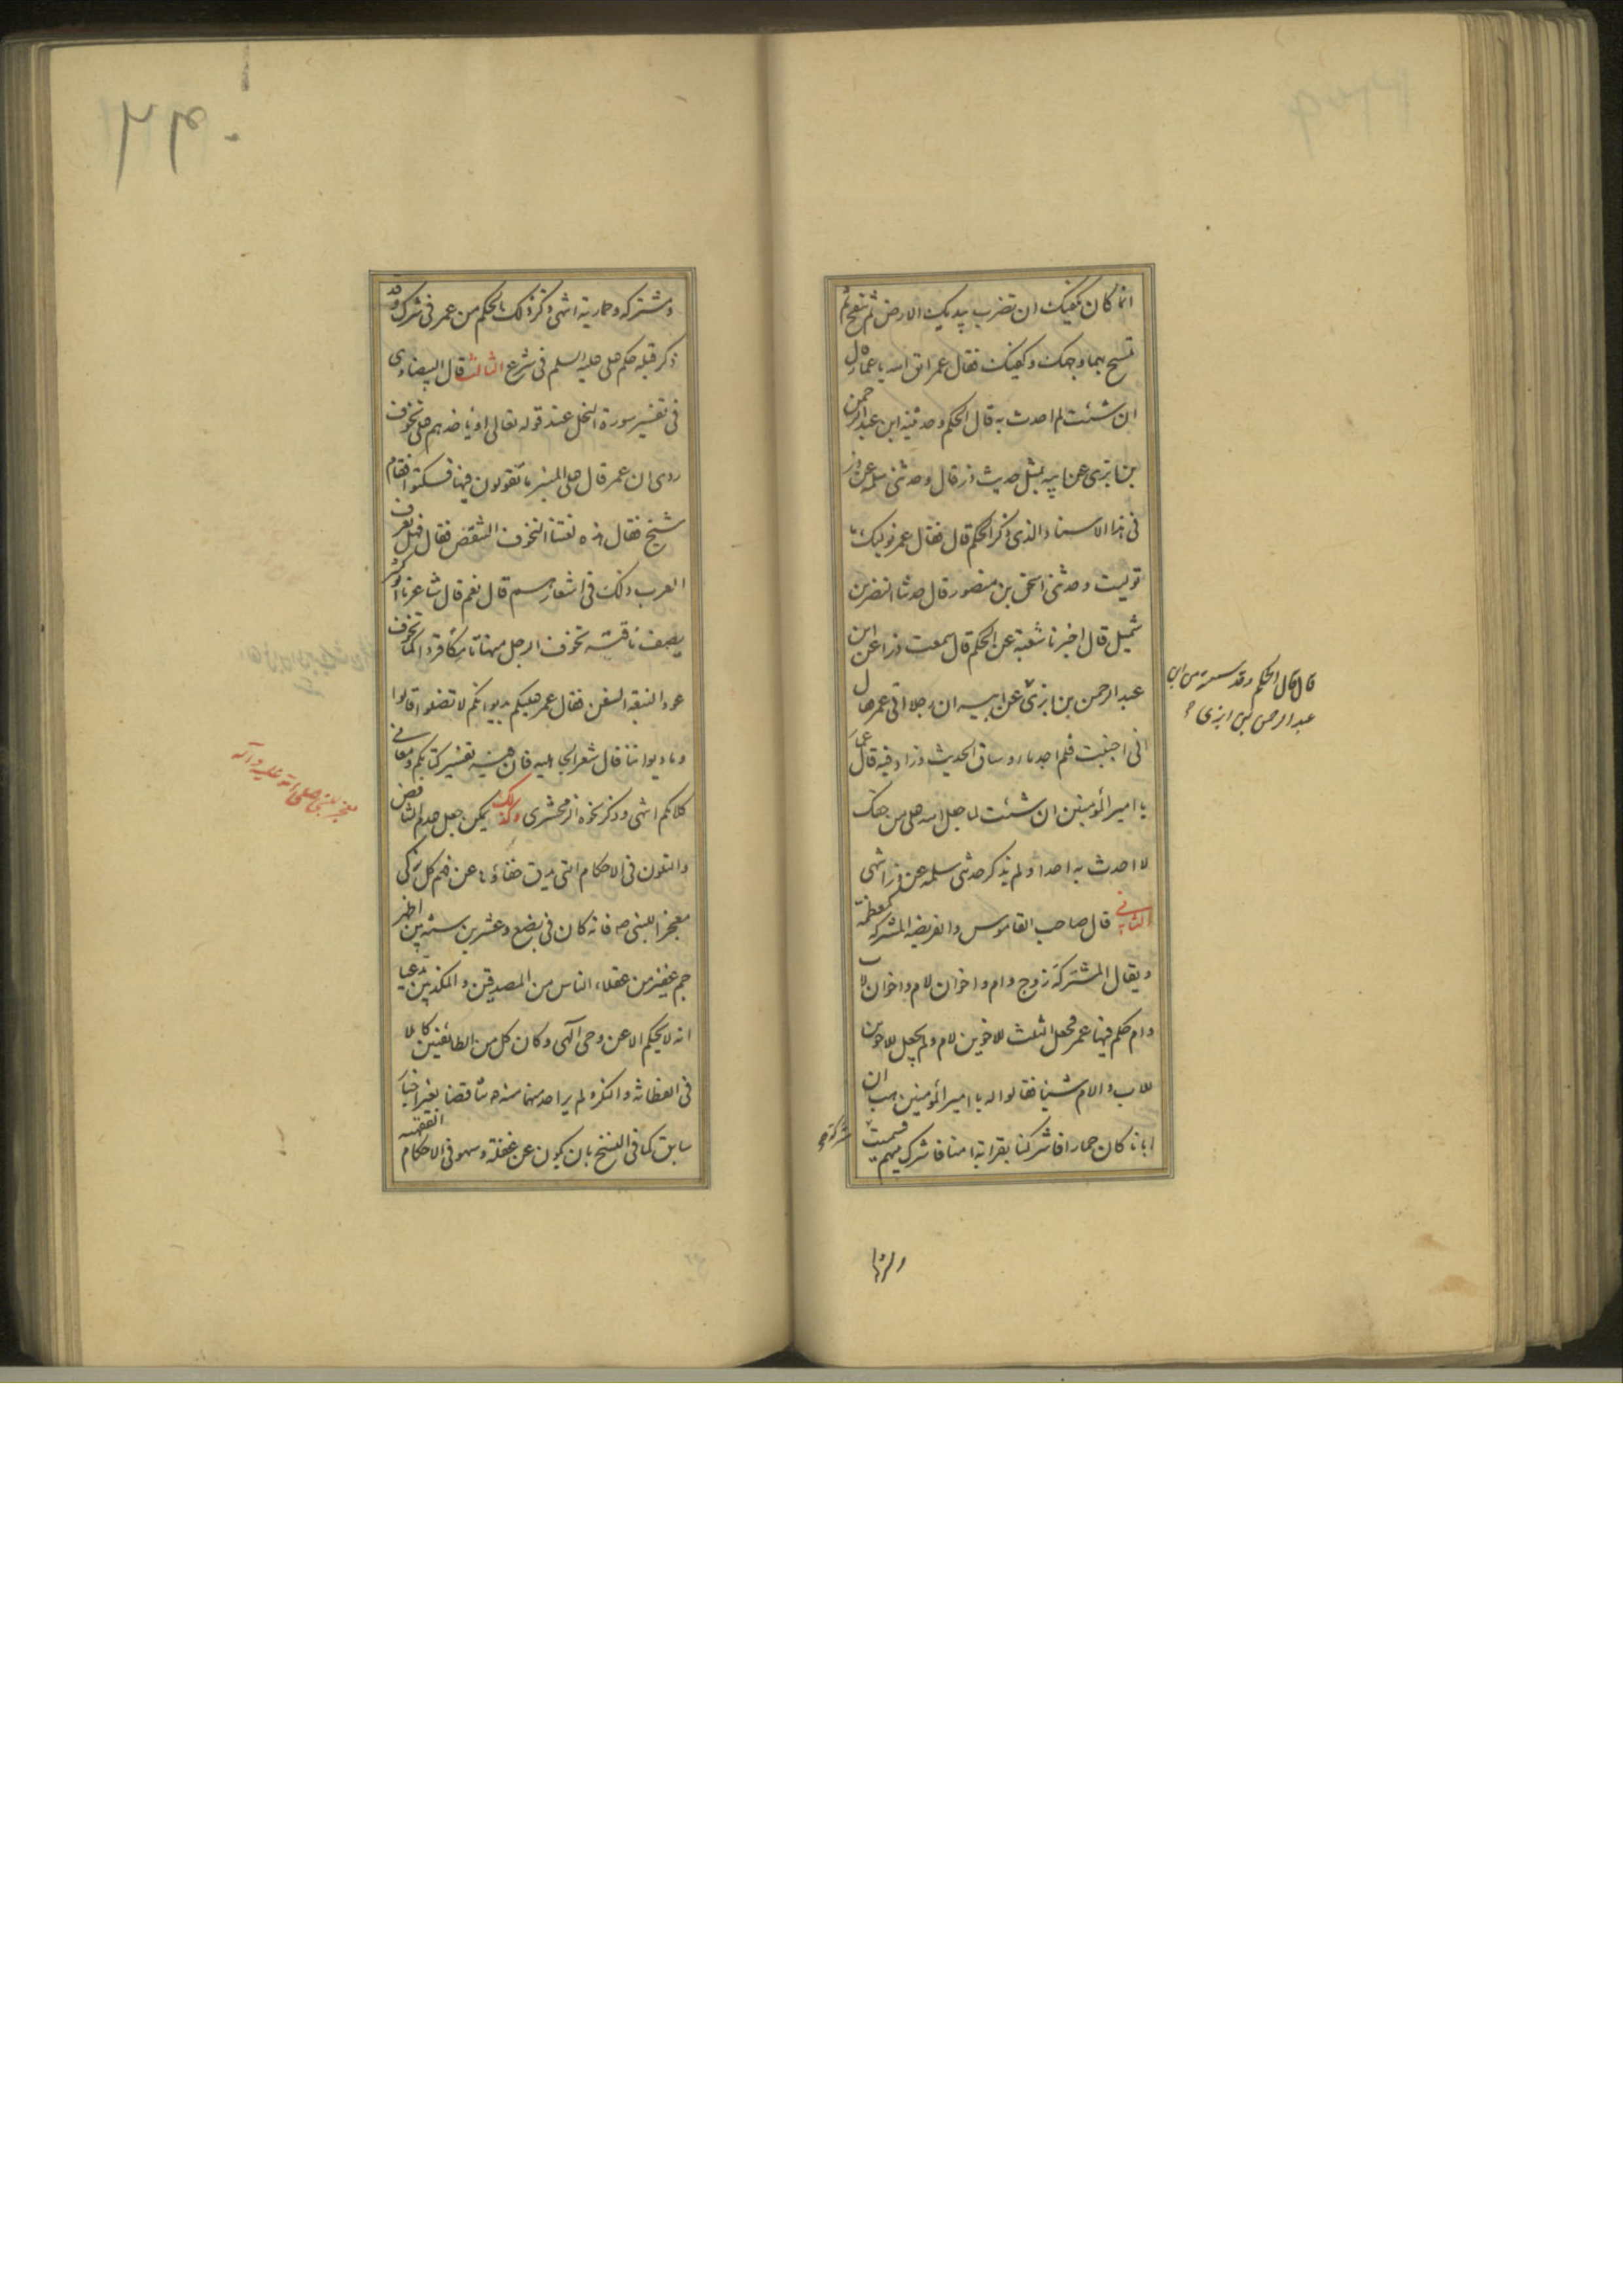 انما كان يكفيك ان تضرب بيديك الارض ثم تنفخ ثم
تمسح بهما وجهك وكفيك فقال عمر اتق الله يا عمار قال
ان شئت لم احدث به قال الحكم وحدثنيه ابن عبد الرحمن
بن ابزى عن ابيه بمثل حديث ذر قال وحدثنى سلمة عن ذر
فى هذا الاسناد الذى ذكر الحكم قال فقال عمر نوليك ما
توليت وحدثنى اسحق بن منصور قال حدثنا النضر بن
شميل قال اخبرنا شعبة عن الحكم قال سمعت ذرا عن ابن
عبد الرحمن بن ابزى عن ابيه ان رجلا اتى عمر قال
قال قال الحكم وقد سمعته من ابن
عبد الرحمن بن ابزى
انى اجنبت فلم اجد ماء وساق الحديث وزاد فيه قال عمار
يا امير المؤمنين ان شئت لما جعل الله على من حقك
لا احدث به احدا ولم يذكر حدثنى سلمة عن ذر انتهى
الثانى قال صاحب القاموس والفريضه المشركه كمعظمة
ويقال المشتركة زوج وام واخوان لام واخوان لاب
وام حكم فيها عمر فجعل الثلث للاخوين لام ولم يجعل للاخوين
للاب والام شيئا فقالوا له يا امير المؤمنين هب ان
ابانا كان حمارا فاشركنا بقرابة امنا فاشرك بينهم فسميت
مشركة
ومشتركه وحمارية انتهى وذكر ذلك الحكم من عمر فى شرك وقد
ذكر قبله حكم على عليه السلم فى شرع الثالث قال البيضاوى
فى تفسير سورة النحل عند قوله تعالى او ياخذهم على تخوف
روى ان عمر قال على المنبر ما تقولون فيها فسكتوا فقام
شيخ فقال هذه لغتنا التخوف التنقص فقال فهل تعرف
العرب ذلك فى اشعارهم قال نعم قال شاعرنا ابو كبير
يصف ناقته تخوف الرحل منها تامكا قردا كما تخوف
عود النبعة السفن فقال عمر عليكم بديوانكم لا تضلوا قالوا
وما ديواننا قال شعر الجاهليه فان فيه تفسير كتابكم ومعانى
كلامكم انتهى وذكر نحوه الزمخشرى وكذلك يمكن جعل عدم التناقض
والتعون فى الاحكام التى يدق خفاؤها عن فهم كل زكى
معجزا للنبى ص فانه كان فى بضع وعشرين سنه بين اظهر
معجز للنبى صلى الله عليه وآله
جم غفير من عقلاء الناس من المصدقين والمكذبين مدعيا
انه لا يحكم الا عن وحى آلهى وكان كل من الطائفتين كاملا
فى الفطانة والنكره لم ير احد منهما منه ص تناقضا بغير اخبار
سابق كما فى النسخ بان يكون عن غفلة وسهو فى الاحكام الفقهيه